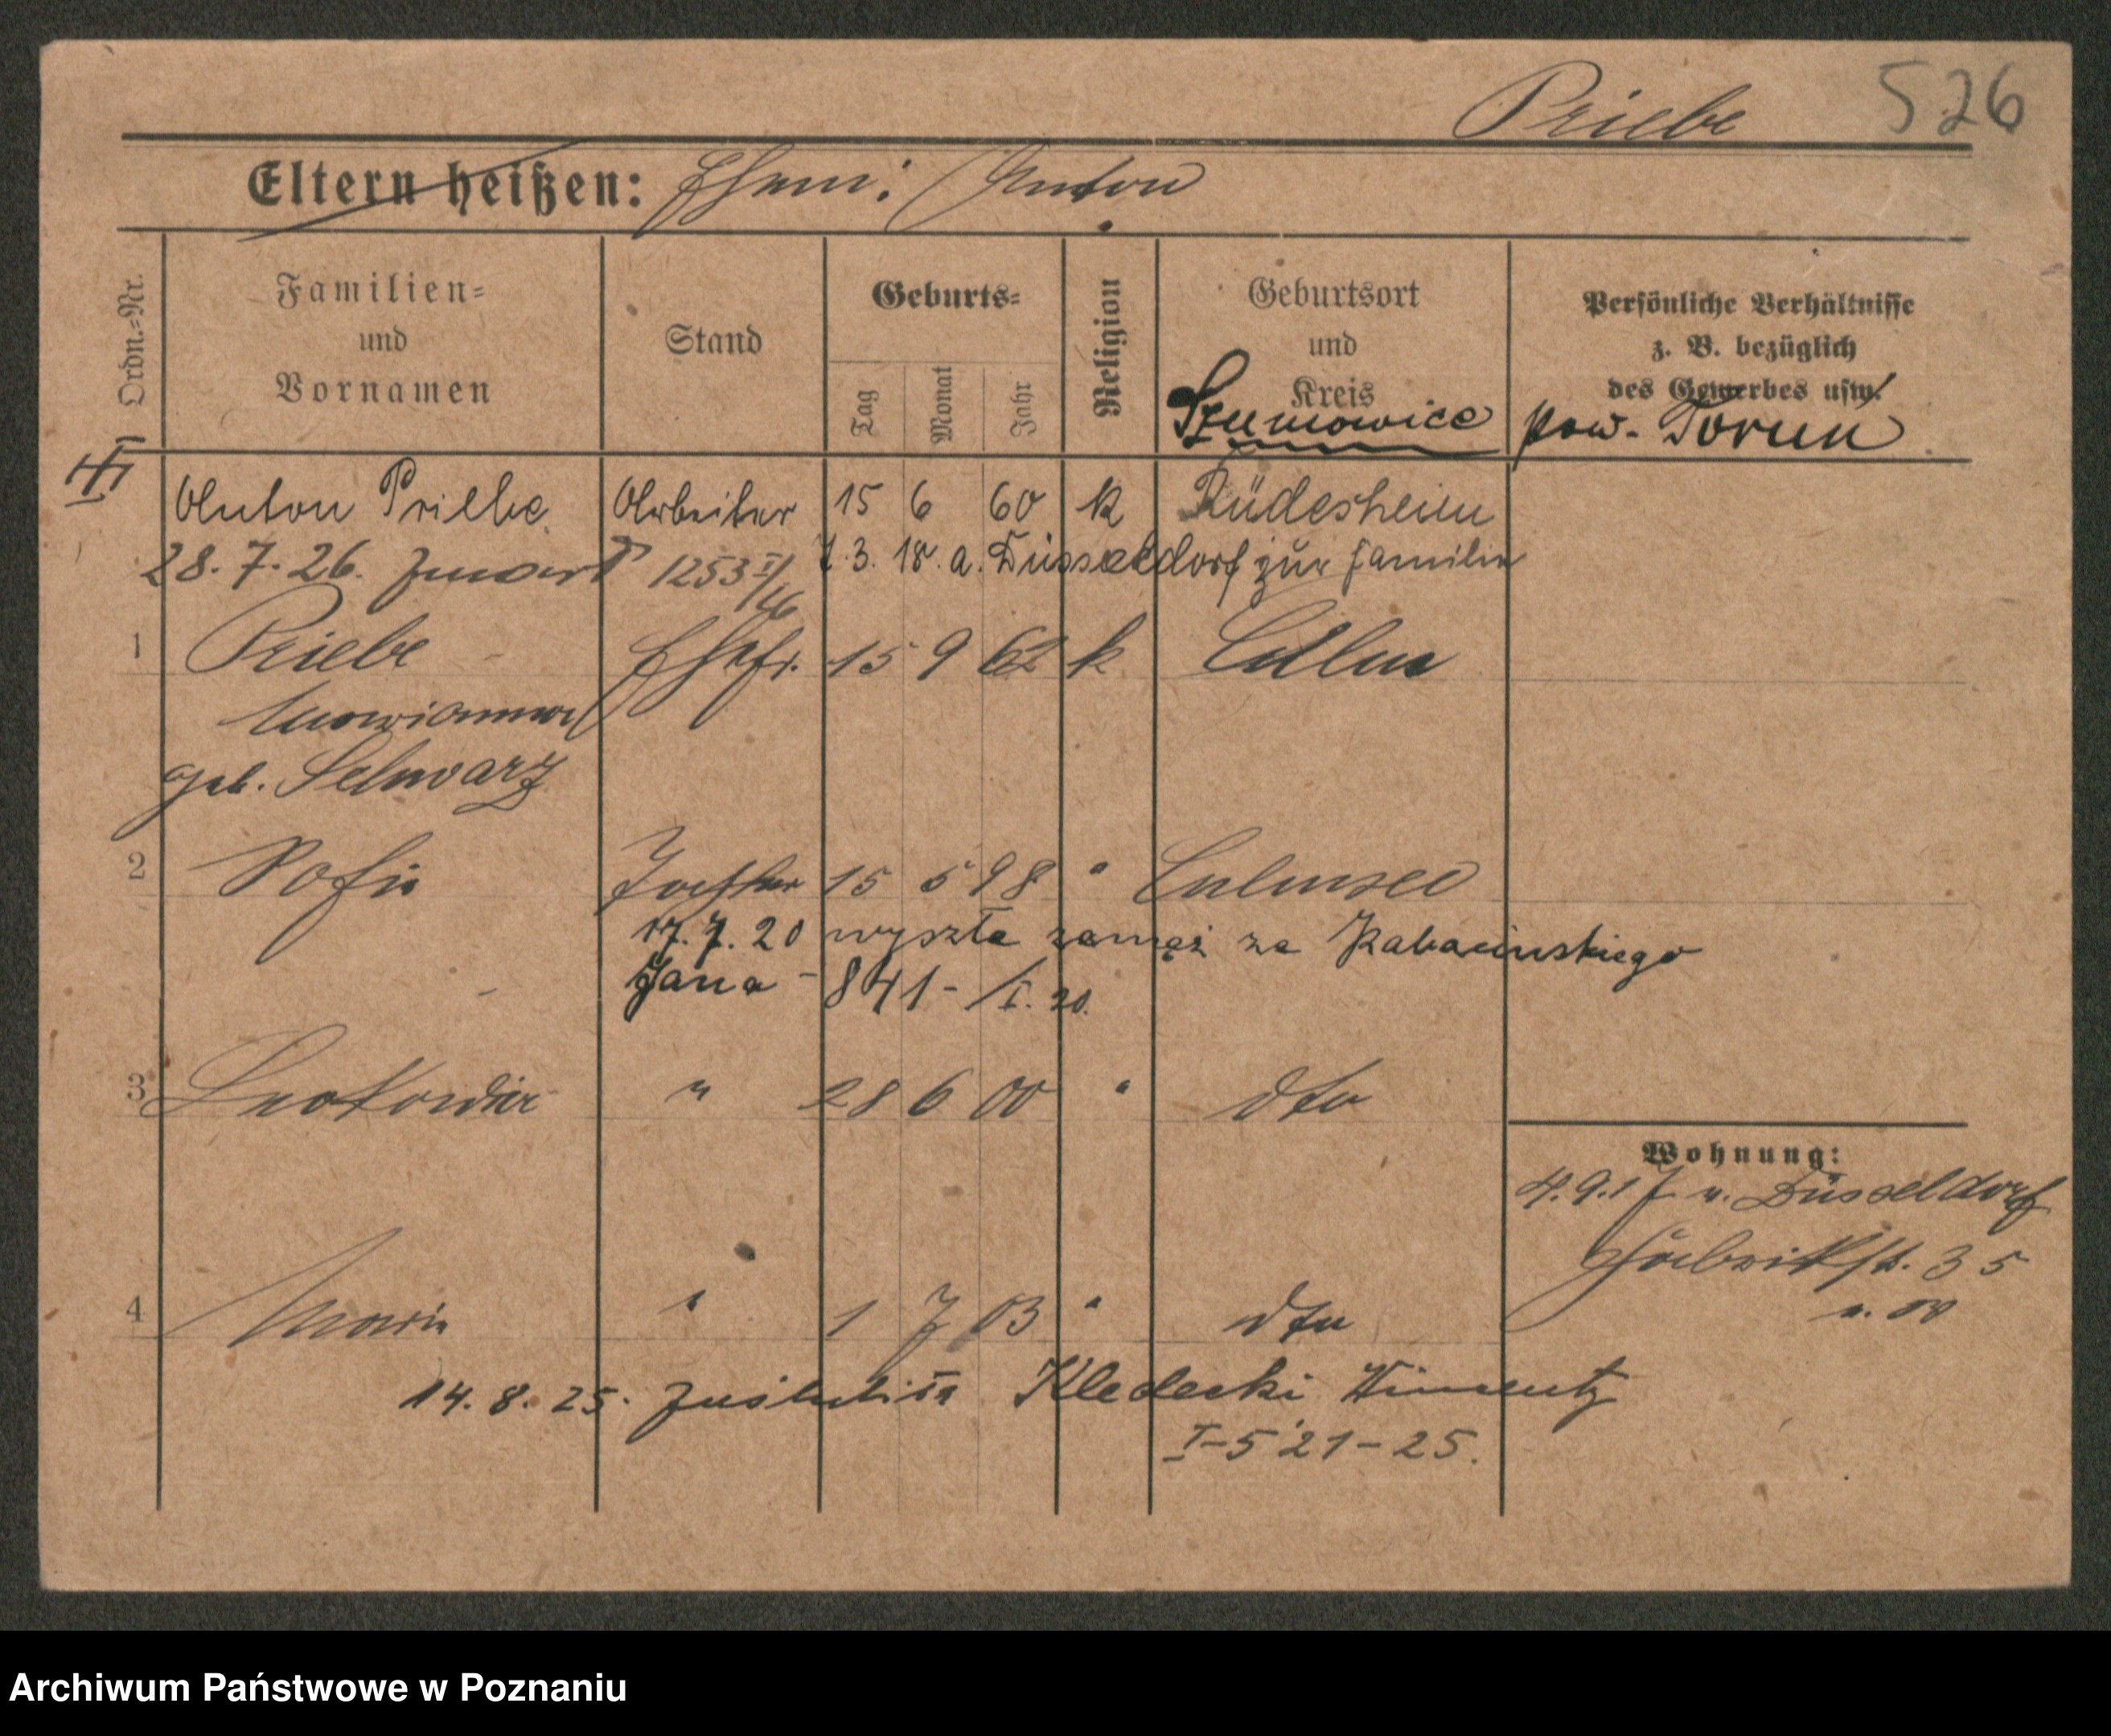 Priebe 526
Eltern heißen: Ehem: Anton
Ordn.-Nr.
Familien-
und
Vornamen
Stand
Geburts-
Tag
Monat
Jahr
Religion
Geburtsort
und
Kreis
Persönliche Verhältnisse
z. B. bezüglich
des Gewerbes usw.
Szumowice pow. Toruń
Anton Priebe Arbeiter 15 6 60 k Rüdesheim
28. 7. 26. zmarł 1253 I/26 7. 3. 18. a. Düsseldorf zur Familie
1 Priebe Ehefr. 15 9 62 k Culm
Marianna
geb. Schwarz
2 Sofie Tochter 15 5 98 " Culmsee
17. 7. 20 wyszła zamąż za Rabacinskiego
Jana - 841 - /I. 20.
3 Leokordia " 28 6 00 " dto
Wohnung:
4. 9. 17 v. Düsseldorf
Fabrikstr. 35
4 Marie " 1 7 03 " dto
14. 8. 25. zaślubiła Kledecki Wincenty
I-521-25.
Archiwum Państwowe w Poznaniu